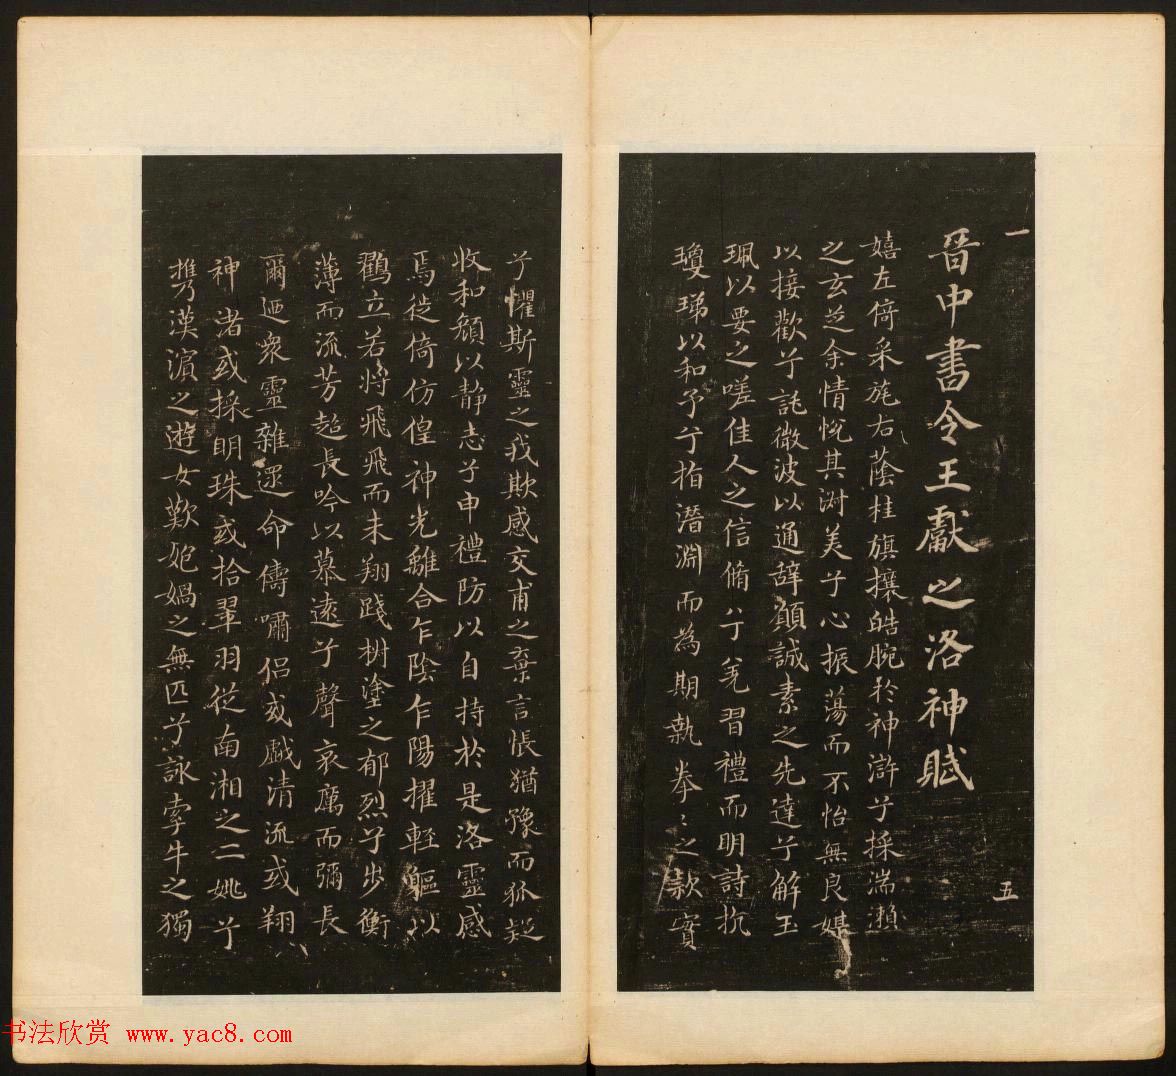 一
五
晉中書令王獻之洛神賦
嬉左倚采旄右蔭桂旗攘皓腕於神滸兮採湍瀨
之玄芝余情悅其淑美兮心振蕩而不怡無良媒
以接歡兮託微波以通辭願誠素之先達兮解玉
珮以要之嗟佳人之信脩兮羌習禮而明詩抗
瓊珶以和予兮指潛淵而為期執拳〻之款實
兮懼斯靈之我欺感交甫之棄言悵猶豫而狐疑
收和顏以静志兮申禮防以自持於是洛靈感
焉徙倚仿偟神光離合乍陰乍陽擢輕軀以
鸖立若將飛飛而未翔踐椒塗之郁烈兮步衡
薄而流芳超長吟以慕遠兮聲哀厲而彌長
爾迺衆靈雜遝命儔嘯侣或戲清流或翔
神渚或採明珠或拾翠羽從南湘之二姚兮
攜漢濱之遊女歎匏媧之無匹兮詠牽牛之獨
书法欣赏 www.yac8.com